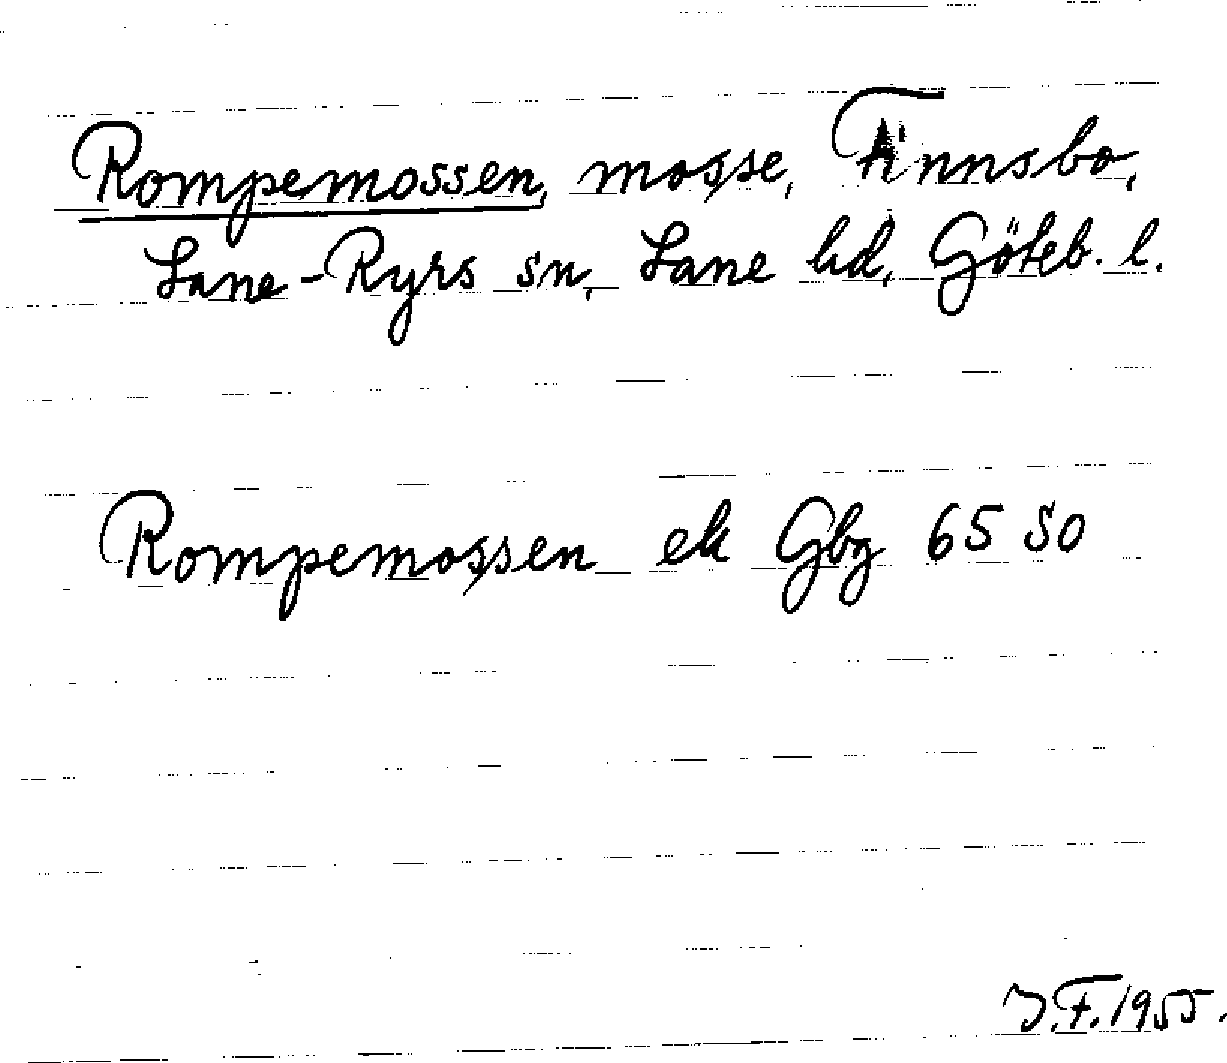 Rompemossen, mosse, Finnsbo,
Lane-Ryrs sn, Lane hd, Göteb. l.
Rompemossen ek Gbg 65 SO
J.F. 1955.